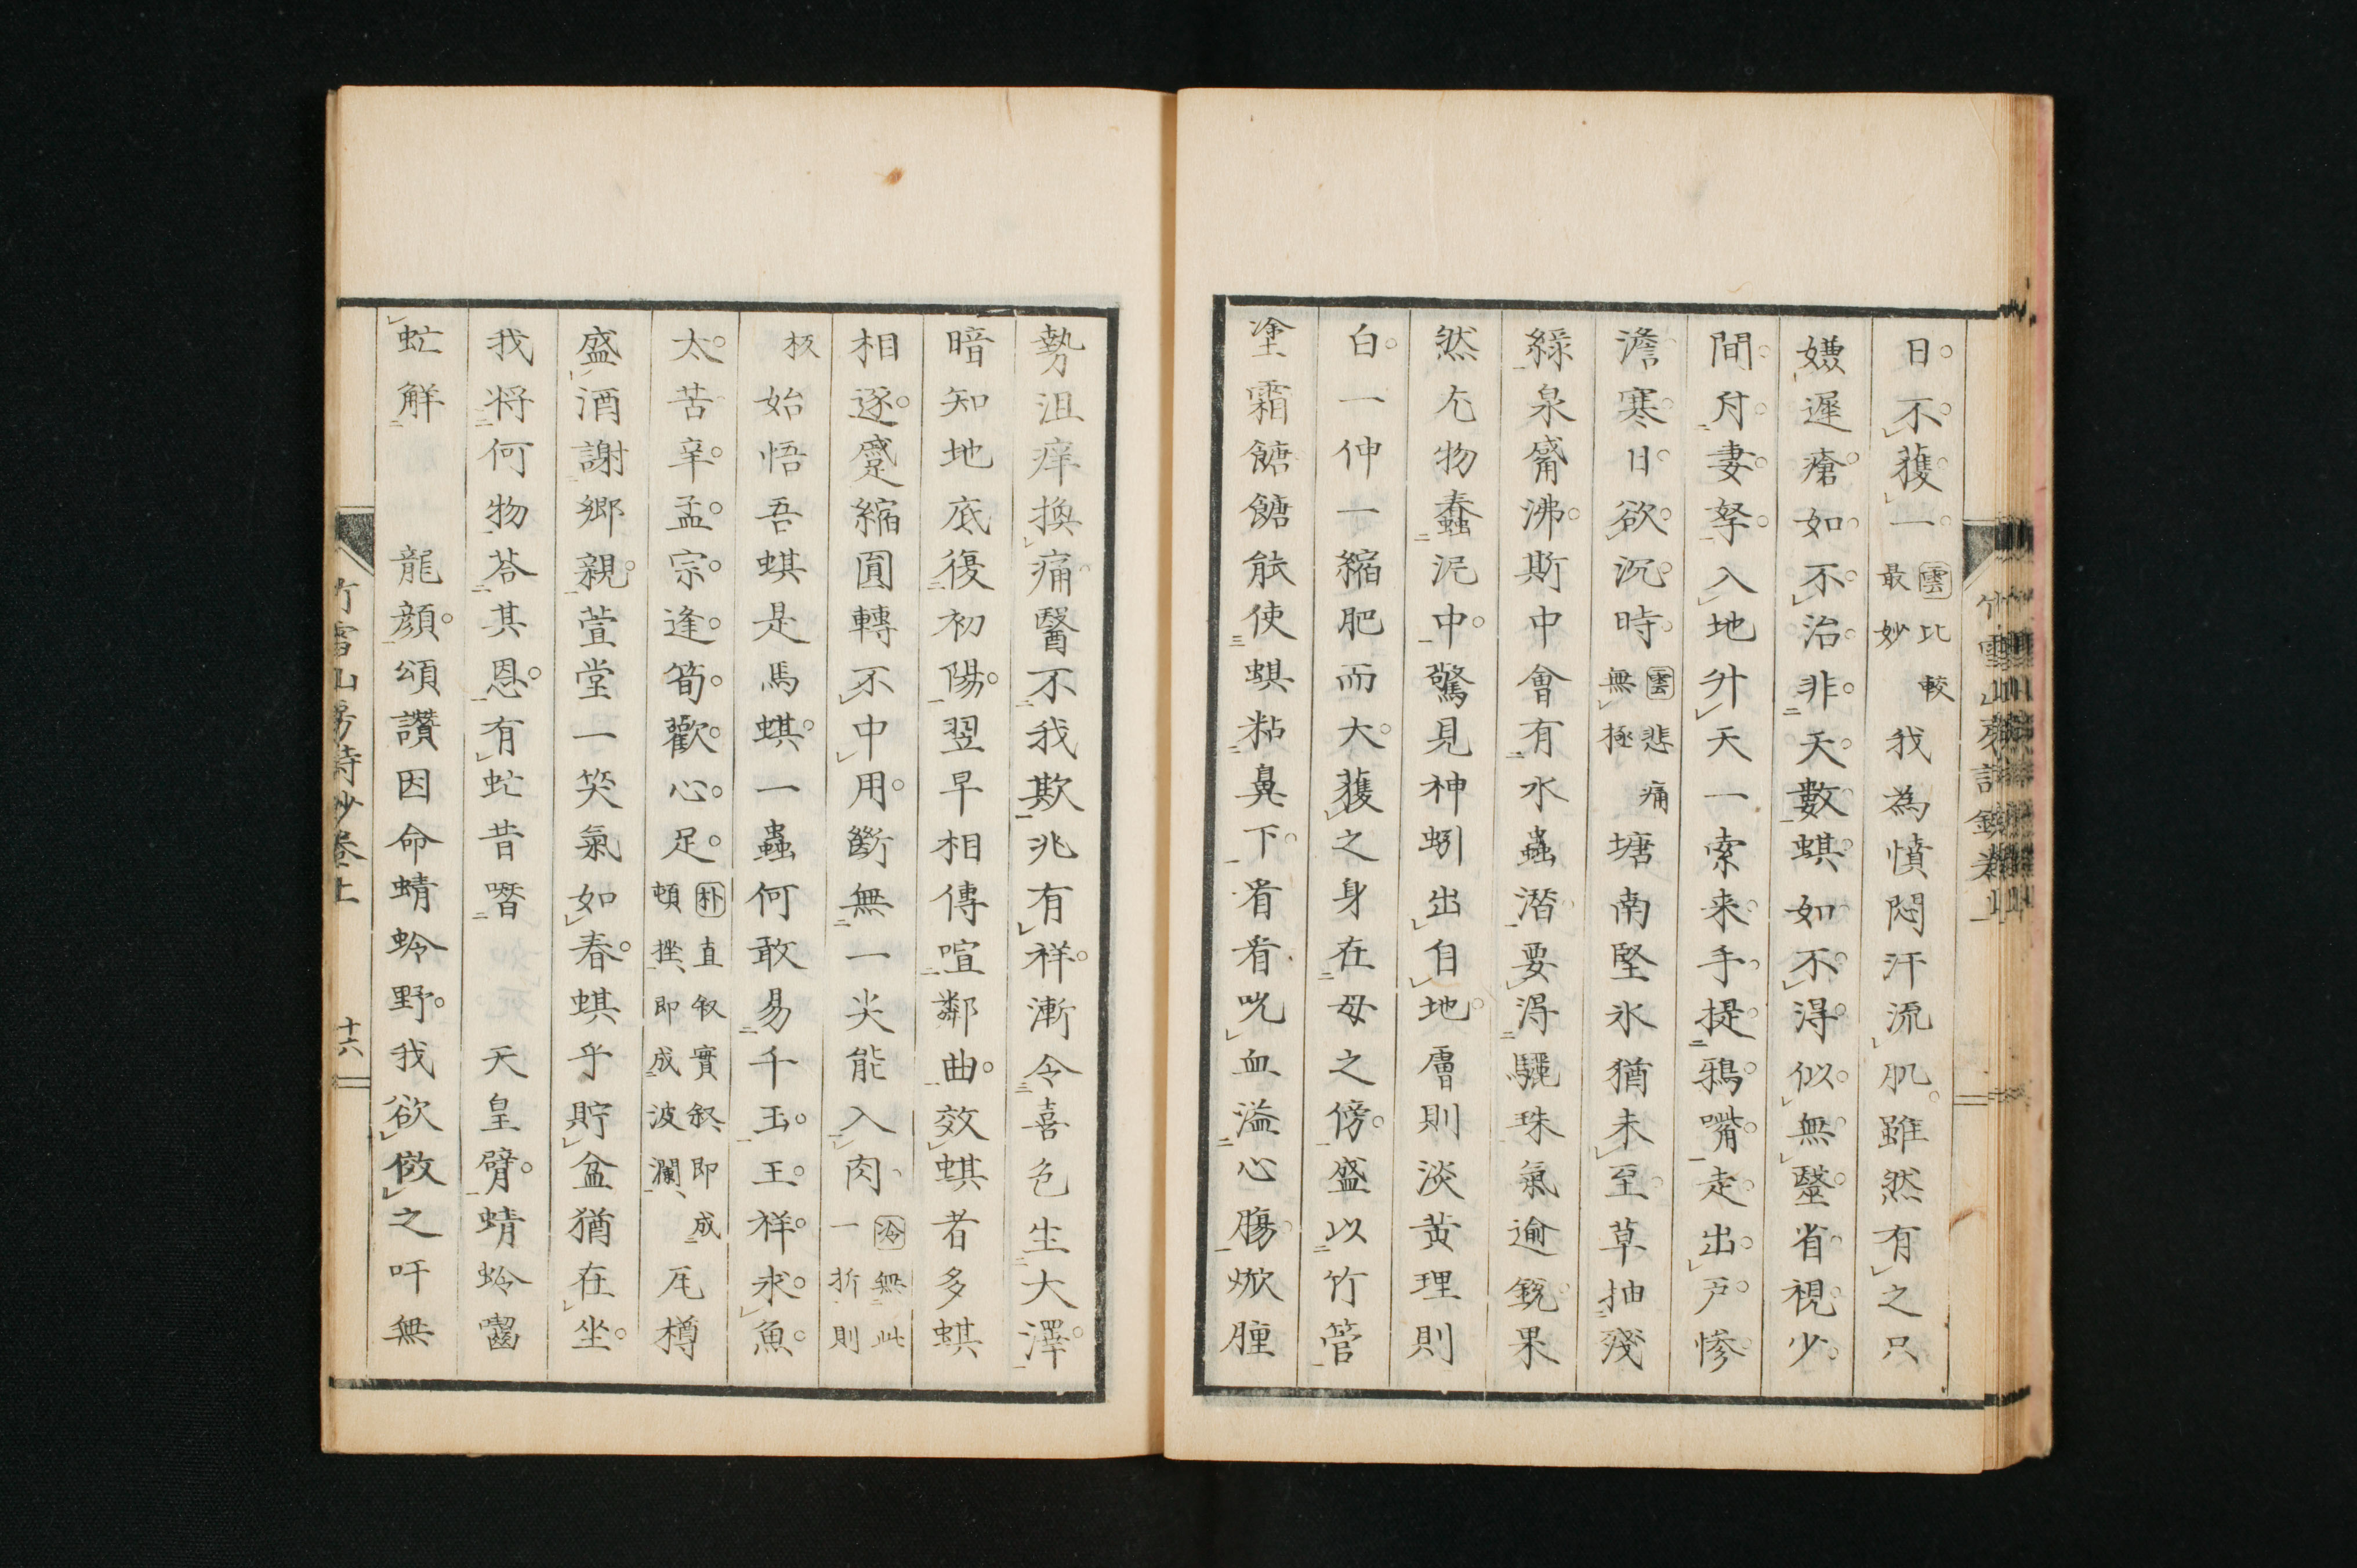 日不獲一雲比較最妙我為憤悶汗流肌雖然有之只
嫌遲瘡如不治非天數蜞如不得似無醫省視少
間付妻孥入地升天一索来手提鴉嘴走出戸惨
澹寒日欲沉時雲悲痛無極塘南堅氷猶未至草抽殘
綠泉觱沸斯中會有水蟲潛要得驪珠氣逾銳果
然冗物蠢泥中驚見神蚓出自地膚則淡黃理則
白一伸一縮肥而大獲之身在母之傍盛以竹管
塗霜餹餹能使蜞粘鼻下看看吮血溢心膓焮腫
勢沮痒換痛醫不我欺兆有祥漸令喜色生大澤
暗知地底復初陽翌早相傳喧鄰曲效蜞者多蜞
相逐蹙縮圓轉不中用斷無一尖能入肉冷無此一折則
板始悟吾蜞是馬蜞一蟲何敢易千玉王祥求魚
太苦辛孟宗逢筍歡心足朴直叙實叙即成頓挫即成波瀾瓦樽
盛酒謝鄉親萱堂一笑氣如春蜞乎貯盆猶在坐
我将何物荅其恩有虻昔噆天皇臂蜻蛉囓
虻解龍顏頌讚因命蜻蛉野我欲傚之吁無
竹雪山房詩鈔卷上 十六